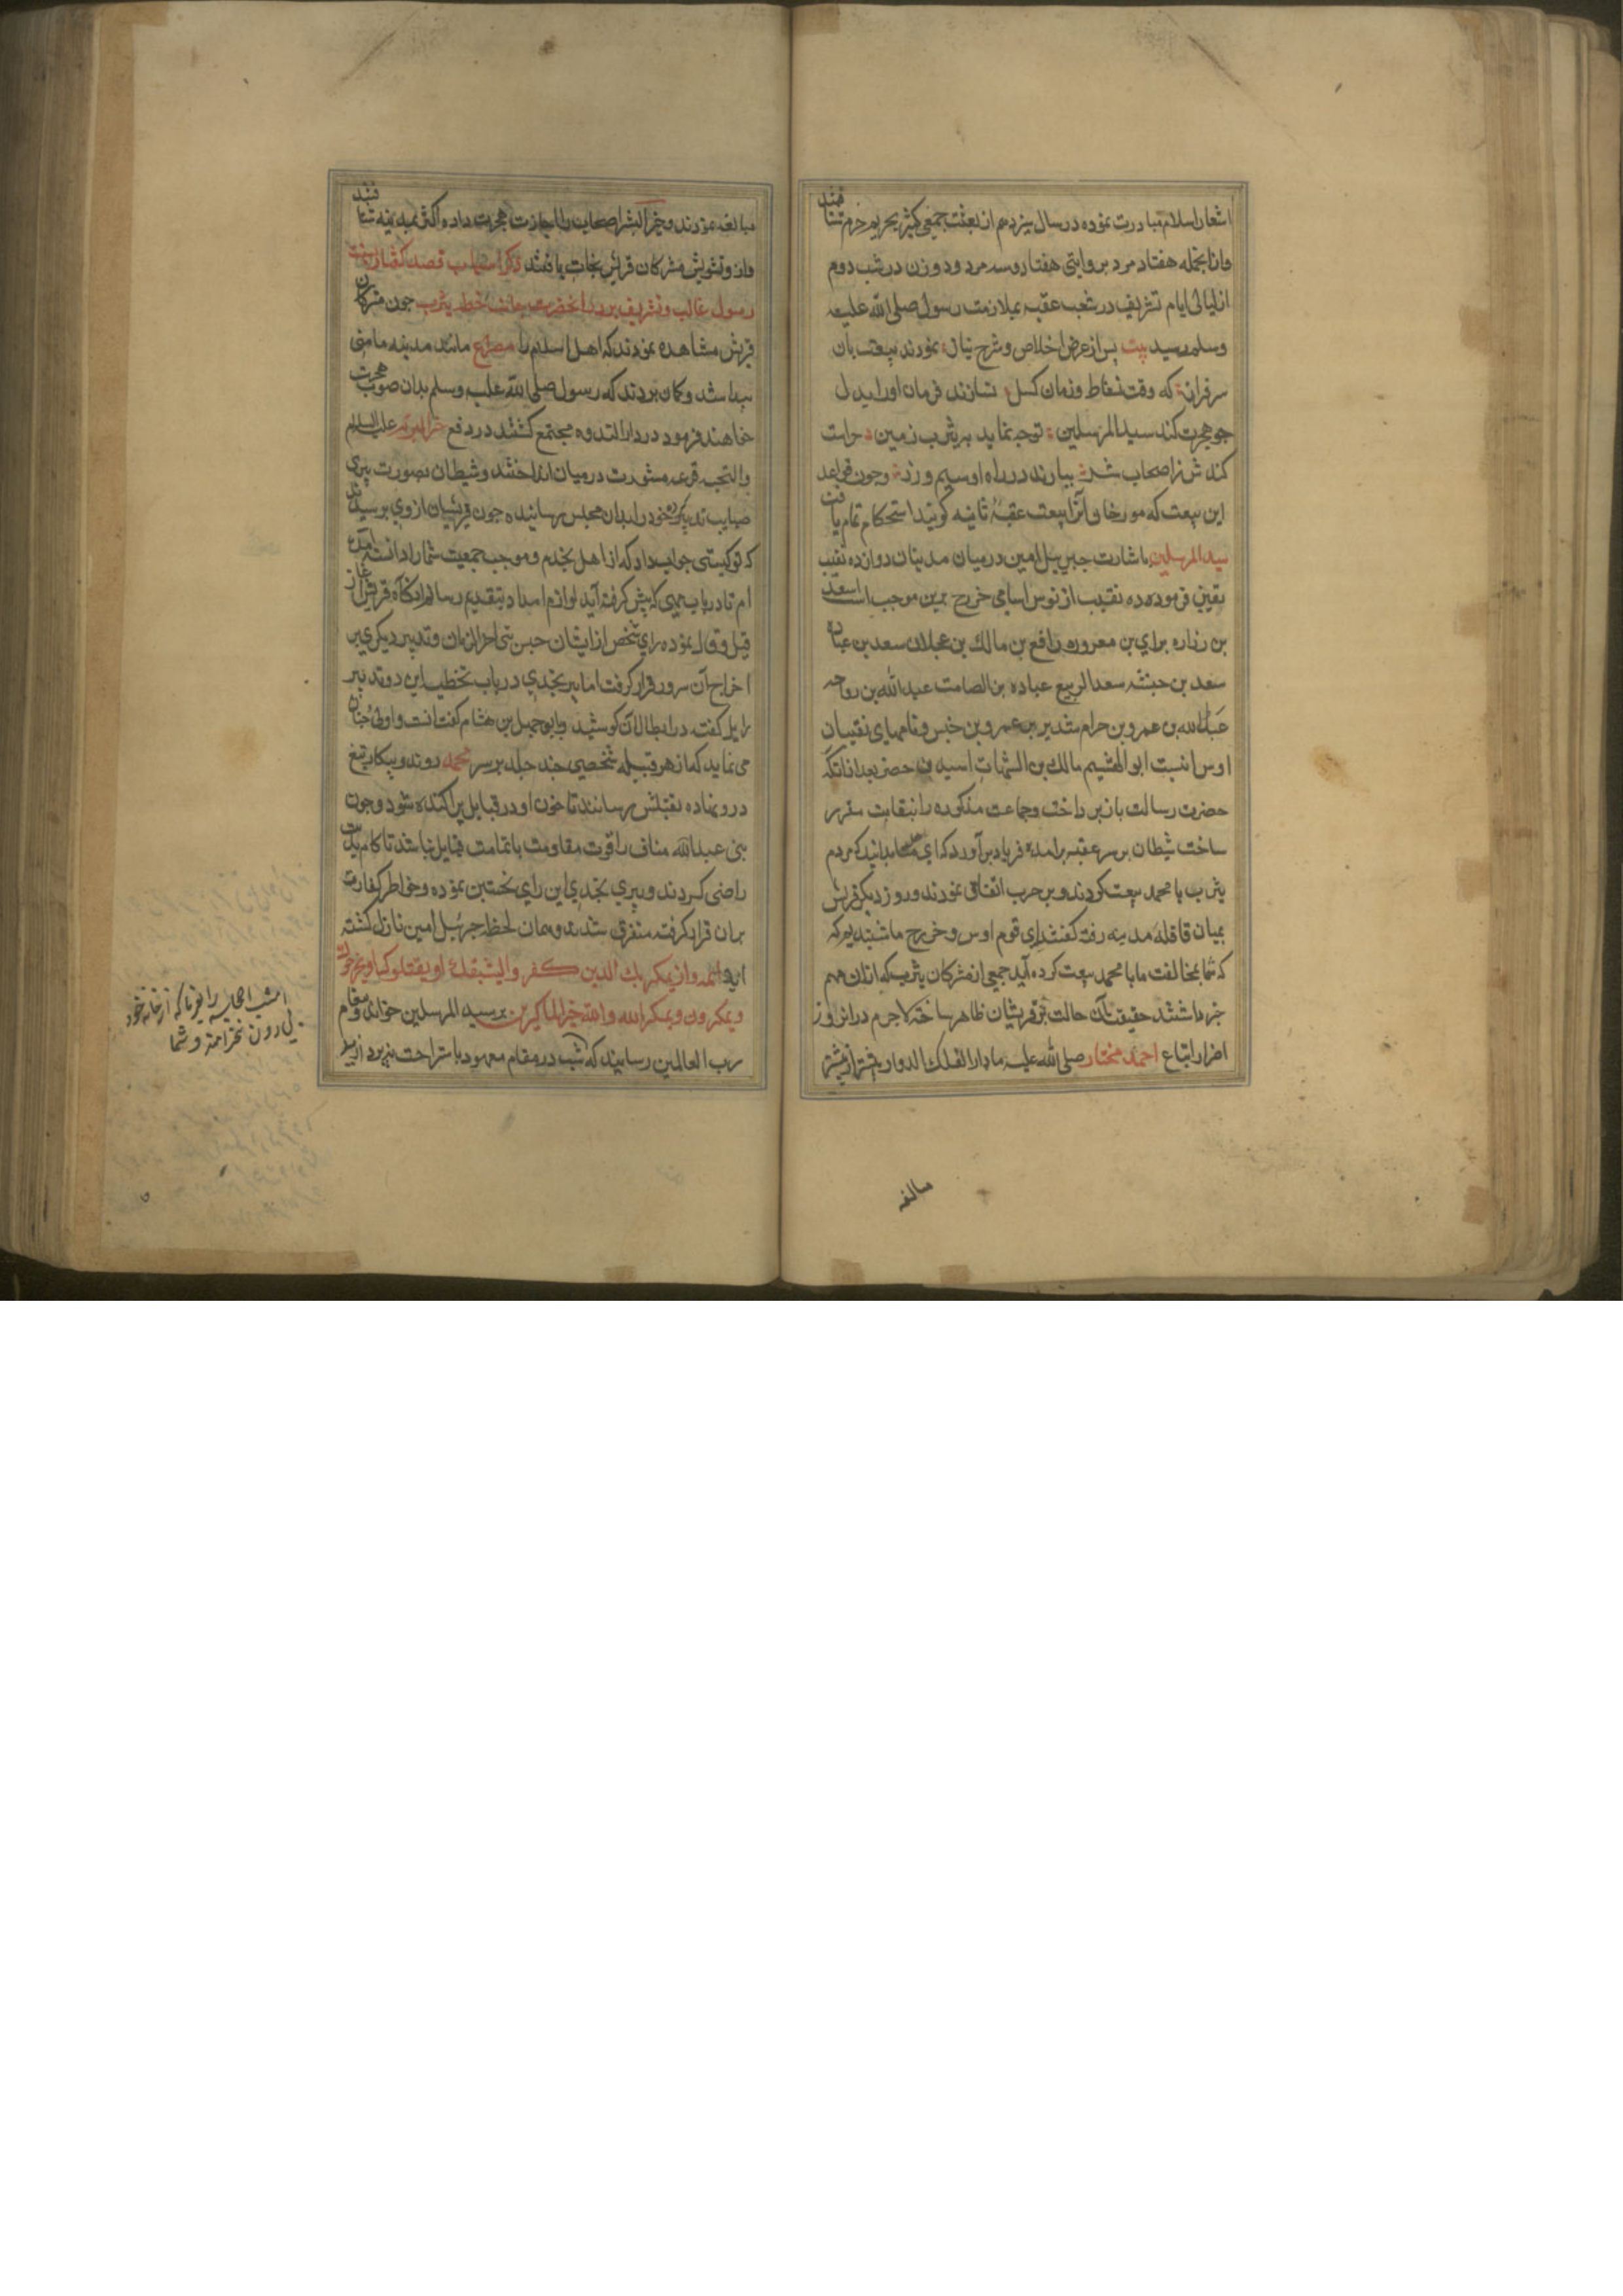 اشعار اسلام مبادرت نموده در سال سیزدهم از بعثت جمعی کثیر بحریم حرم شتافتند
وازانجمله هفتاد مرد بروایتی هفتاد وسه مرد و دو زن در شب دوم
از لیالی ایام تشریف در شعب عقبه بملازمت رسول صلی الله علیه
وسلم رسید بیت پس از عرض اخلاص و شرح نیاز نمودند بیعت بان
سرفراز که وقت نشاط و زمان کسل نسازند فرمان او را بدل
جو هجرت کند سید المرسلین توجه نماید بیثرب زمین حراست
کنندش ز اصحاب شر ببارند در راه او سیم و زر وجون قواعد
این بیعت که مورخان آنرا بیعت عقبهٔ ثانیه کویند استحکام تمام یافت
سید المرسلین باشارت جبرییل امین درمیان مدنیان دوازده نقیب
تعین فرموده ده نقیب از نوس اسامی خزرج برین موجب است اسعد
بن زراره برای بن معروره رافع بن مالك بن عجلان سعد بن عباده
سعد بن حبثمه سعد الربیع عباده بن الصامت عبد الله بن رواحه
عبد الله بن عمرو بن حرام منذیر بن عمرو بن خنیس ونامهای نقیبان
اوس اینست ابو الهشیم مالك بن الشهات اسید بن حضر بعد ازانکه
حضرت رسالت باز پرداخت وجماعت مذکوره را بنقابت مقرر
ساخت شیطان بر سر عقبه برامده فریاد برآورد که ای بدانید که مردم
یثرب با محمد بیعت کردند و بر حرب اتفاق نمودند و روز دیکر قریش
بمیان قافلهٔ مدینه رفته کفتند ای قوم اوس و خزرج ما شنیدیم که
که شما بمخالفت ما با محمد بیعت کرده آید جمعی از مشرکان یثرب که ازان مهم
خبر نداشتند حقیقت آن حالت بر قریشان ظاهر ساختند لاجرم دران روز
اضرار اتباع احمد مختار صلی الله علیه مادار الفلك الدوار بیشتر از پیشتر
مبالغه نمودند و خیر البشر اصحاب را اجازت هجرت داد و اکثر بمدینه شتافتند
واز تشویش مشرکان قریش نجات یافتند ذکر اسباب قصد کفار نسبت
رسول غالب و تشریف بردن انحضرت بجانب خطه یثرب جون مشرکان
قریش مشاهده نمودند که اهل اسلام را مصراع مانند مدینه مامنی
پیدا شد و کمان بردند که رسول صلی الله علیه وسلم بدان صوب هجرت
خواهند فرمود در دار الندوه مجتمع کشتند در دفع خیر البریه علیه السلام
والتحیه قرعه مشورت درمیان انداختند وشیطان بصورت پیری
صایب تدبیر خود را بدان مجلس رسانیده جون قریشیان از وی پرسیدند
که تو کیستی جواب داد که از اهل نجدم و موجب جمعیت شما را دانسته آمده
ام تا در باب مهمی که پیش کرفته آید لوازم امداد بتقدیم رسانم انکاه قریش آغاز
قیل وقال نموده رای شخص از ایشان حبس نبی اخر الزمان و تدبیر دیکری بر
اخراج آن سرور قرار کرفت اما پیر نجدی در باب تخطیه این دو تدبیر
دلایل کفته در ابطال آن کوشید و ابو جهل بن هشام کفت انسب واولی جنان
می نماید که از هر قبیله شخصی جند جلد بر سر محمد روند وبیکار تیغ
درو نهاده بقتلش رسانند تا خون او در قبایل پراکنده شود و جون
بنی عبد الله مناف را قوت مقاومت با تمامت قبایل نباشد تا کام بدیت
راضی کردند و پیری نجدی این رای تحسین نموده وخواطر کفار
بران قرار کرفته متفرق شدند وهمان لحظه جبرئیل امین نازل کشته
ایه واذ یمکر بك الذین کفر والیثبتوك او یقتلوك او یخرجوك
ویمکرون ویمکر الله والله خیر الماکرین بر سید المرسلین خواند و پیغام
رب العالمین رسانید که شب در مقام معهود باستراحت نپردازید
امشب
از خانه خود
و شما
مبالغه